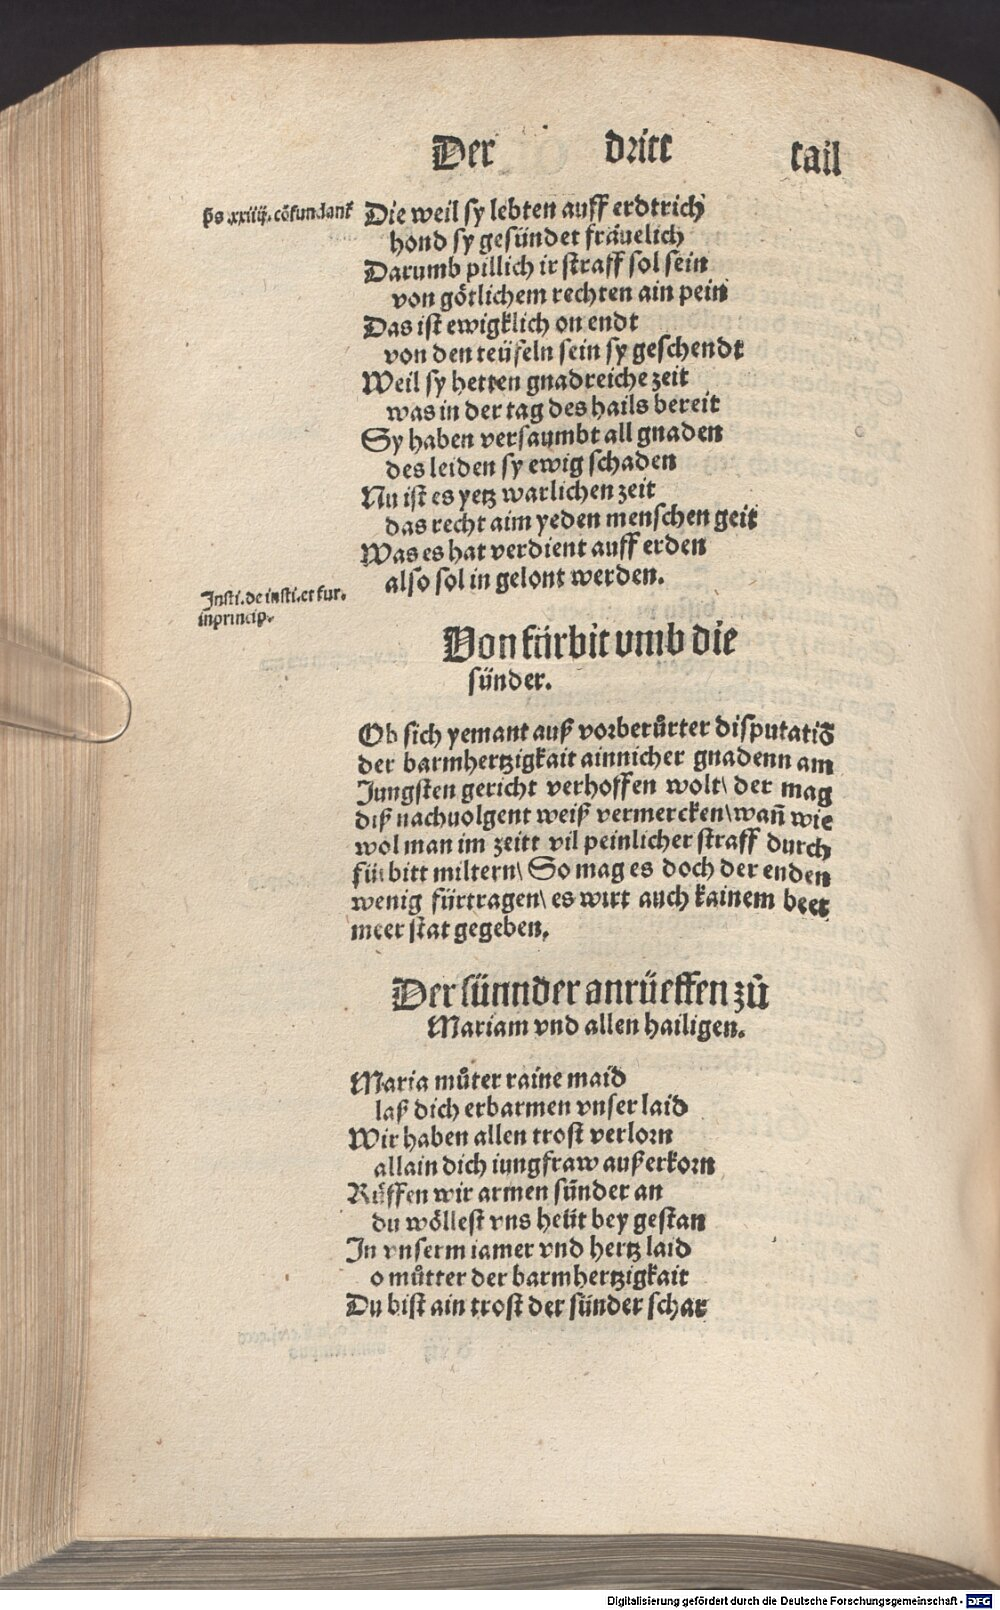 Der dritt tail
ps xxiiij. cōfundant
Die weil sy lebten auff erdtrich
hond sy gesündet fräuelich
Darumb pillich ir straff sol sein
von götlichem rechten ain pein
Das ist ewigklich on endt
von den teüfeln sein sy geschendt
Weil sy hetten gnadreiche zeit
was in der tag des hails bereit
Sy haben versaumbt all gnaden
des leiden sy ewig schaden
Nu ist es yetz warlichen zeit
das recht aim yeden menschen geit
Was es hat verdient auff erden
also sol in gelont werden.
Insti. de iusti. et iur.
in princip.
Von fürbit vmb die
sünder.
Ob sich yemant auß vorberůrter disputatiō
der barmhertzigkait ainnicher gnadenn am
Jungsten gericht verhoffen wolt\ der mag
diß nachuolgent weiß vermercken\ wañ wie
wol man im zeitt vil peinlicher straff durch
fürbitt miltern\ So mag es doch der enden
wenig fürtragen\ es wirt auch kainem beet
meer stat gegeben.
Der sünnder anrüeffen zů
Mariam vnd allen hailigen.
Maria můter raine maid
laß dich erbarmen vnser laid
Wir haben allen trost verlorn
allain dich iungfraw außerkorn
Rüffen wir armen sünder an
du wöllest vns heüt bey gestan
In vnserm iamer vnd hertz laid
o můtter der barmhertzigkait
Du bist ain trost der sünder schar
Digitalisierung gefördert durch die Deutsche Forschungsgemeinschaft - DFG